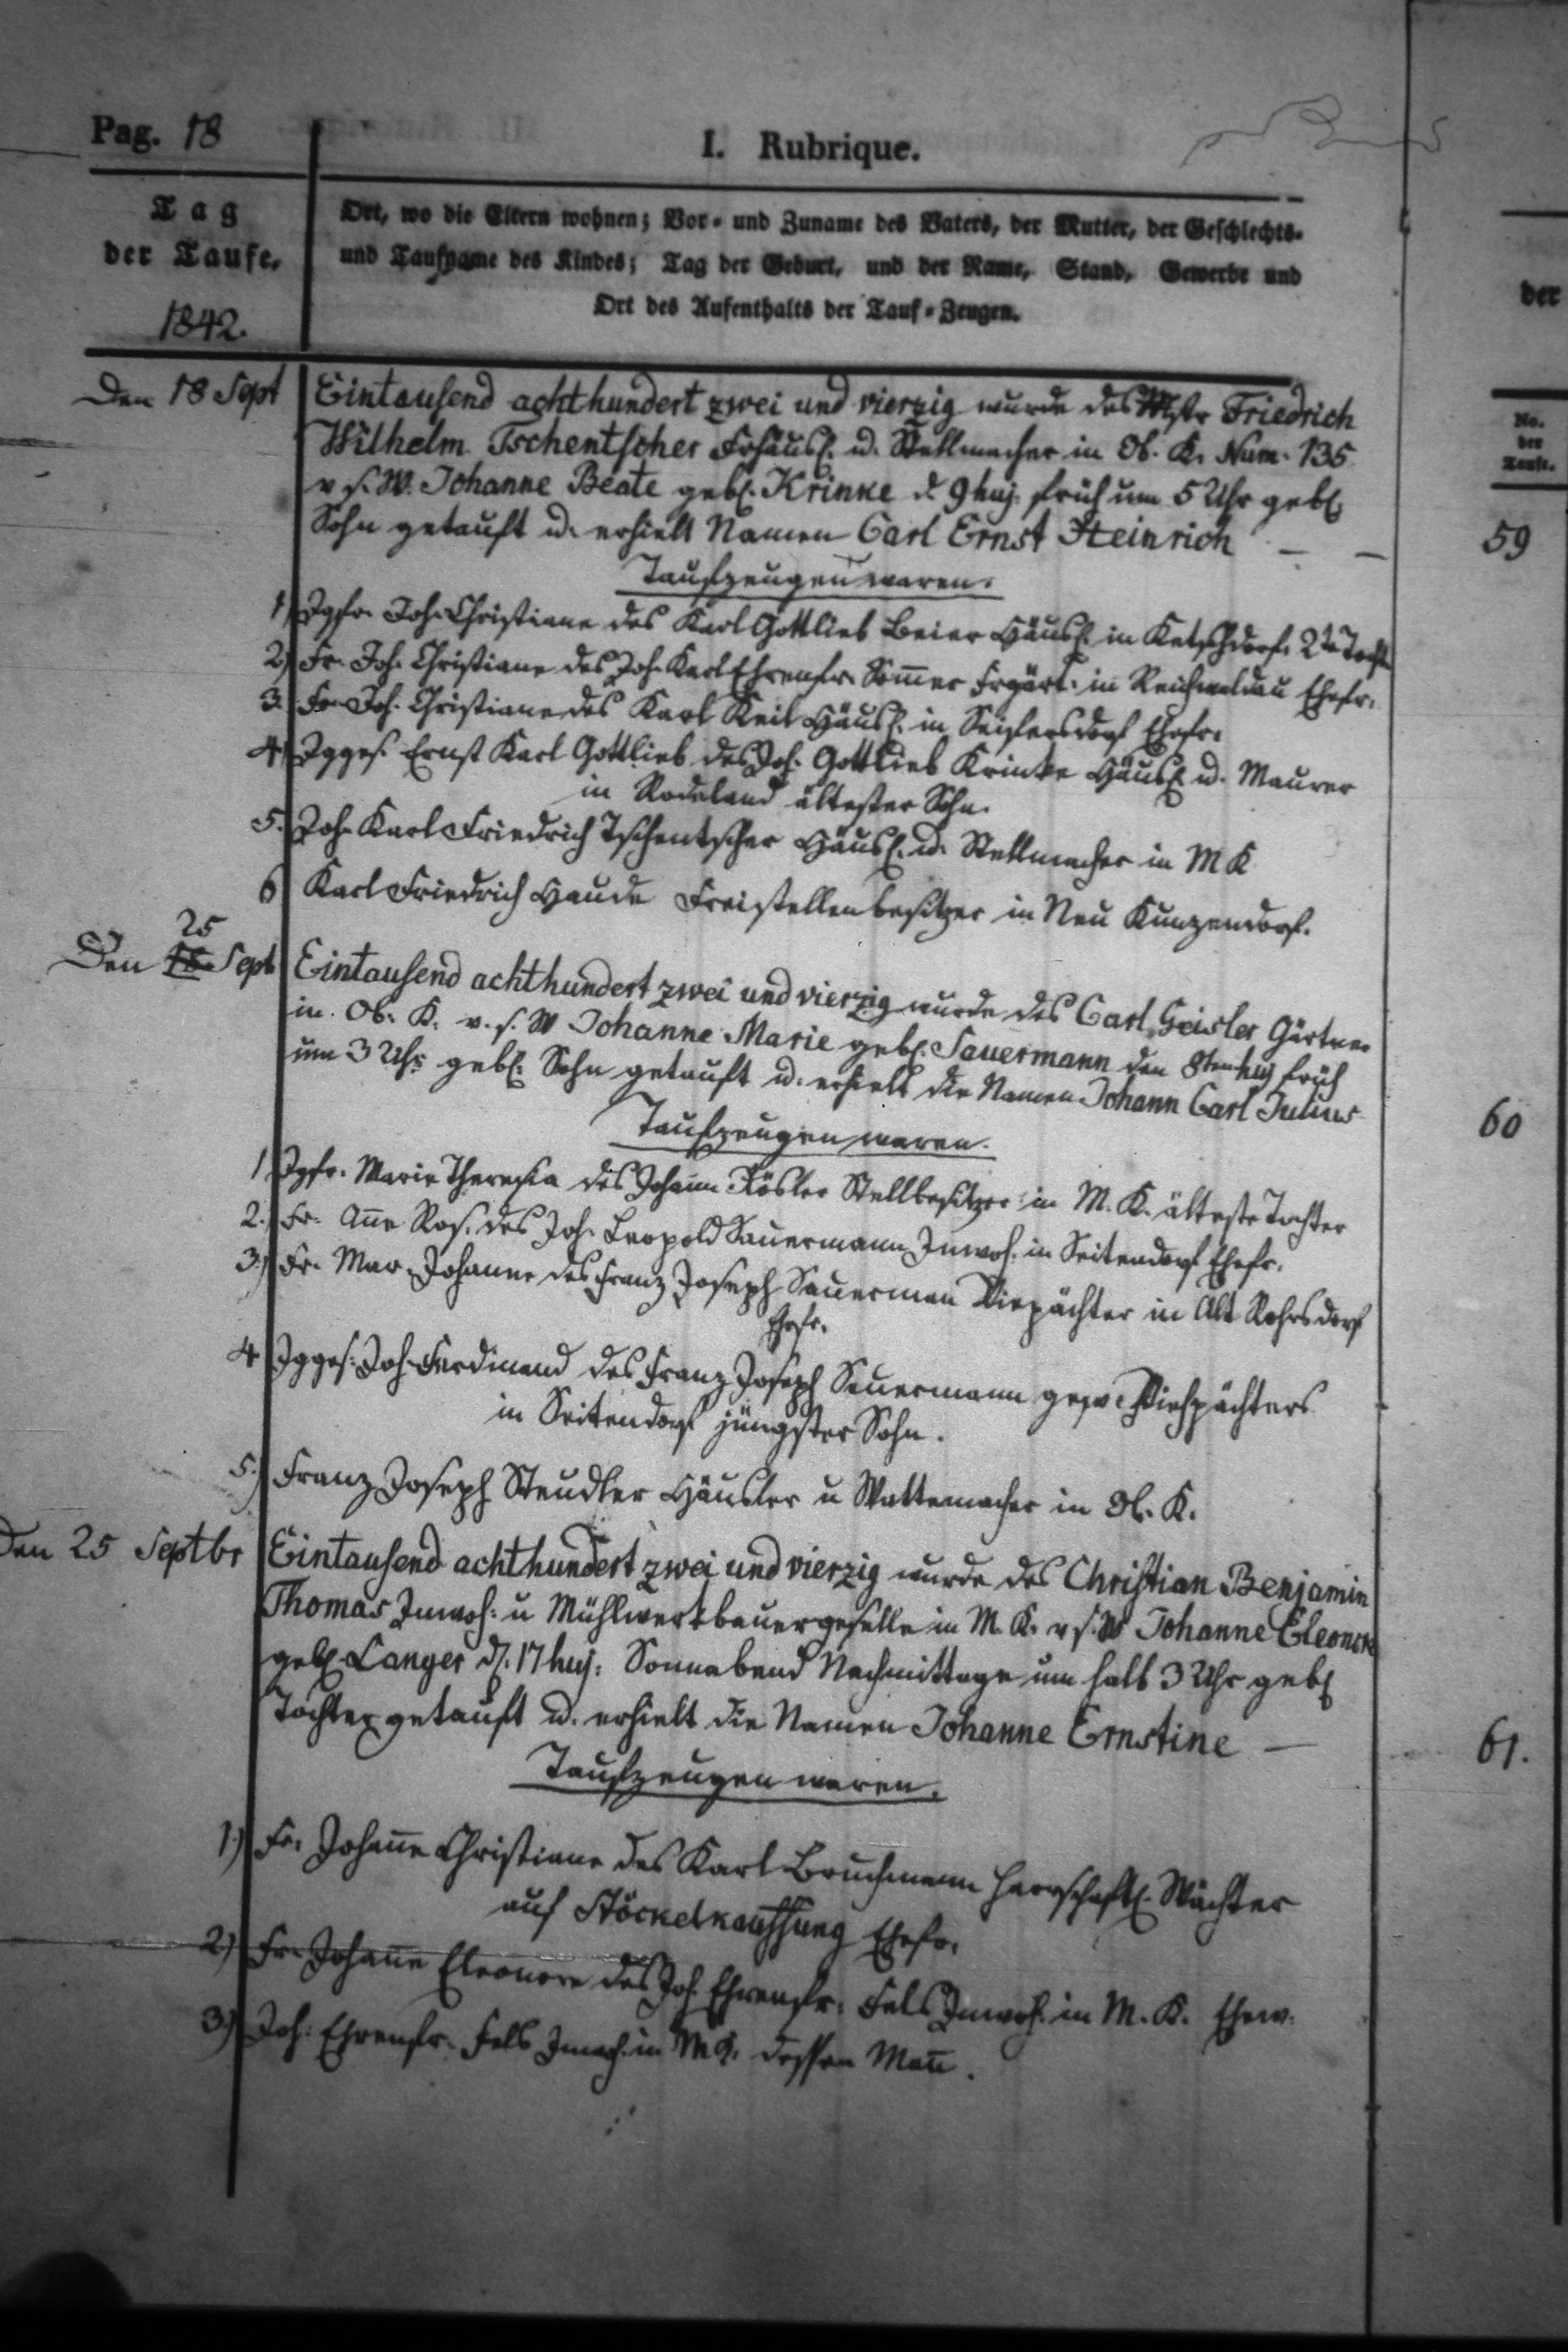 Pag. 18
I. Rubrique.
Tag
der Taufe.
1842.
Ort, wo die Eltern wohnen; Vor- und Zuname des Vaters, der Mutter, der Geschlechts-
und Taufname des Kindes; Tag der Geburt, und der Name, Stand, Gewerbe und
Ort des Aufenthalts der Tauf-Zeugen.
der
No.
der
Taufe.
Den 18 Sept
Eintausend achthundert zwei und vierzig wurde des Mstr Friedrich
Wilhelm Tschentscher Frhäusl. u. Stellmacher in Ob. K. Num. 135
v. s. W. Johanne Beate geb. Krinke d. 9 huj. früh um 5 Uhr geb.
Sohn getauft u. erhielt Namen Carl Ernst Heinrich — —
59
Taufzeugen waren.
1) Jgfr. Joh. Christiane des Karl Gottlieb Beier Häusl. in Ketschdorf 2te Tocht.
2) Fr. Joh. Christiane des Joh. Karl Ehrenfr. Sommer Frgärt. in Reichwaldau Ehefr.
3. Fr. Joh. Christiane des Karl Keil Häusl. in Seifersdorf Ehefr.
4) Jgges. Ernst Karl Gottlieb des Joh. Gottlieb Krinke Häusl. u. Maurer
in Rodeland ältester Sohn.
5. Joh. Karl Friedrich Tschentscher Häusl. u. Stellmacher in M K
6 Karl Friedrich Haude Freistellenbesitzer in Neu Kunzendorf.
25
Den 18 Sept
Eintausend achthundert zwei und vierzig wurde des Carl Geisler Gärtner
in Ob. K. v. s. W Johanne Marie geb. Sauermann den 8ten huj früh
um 3 Uhr geb. Sohn getauft u. erhielt die Namen Johann Carl Julius
60
Taufzeugen waren.
1 Jgfr. Marie Theresia des Johann Rösler Stellbesitzer in M. K. älteste Tochter
2. Fr. Anne Ros. des Joh. Leopold Sauermann Inwoh. in Seitendorf Ehefr.
3.) Fr. Mar. Johanne des Franz Joseph Sauerman Viepächter in Alt Rohrsdorf
Ehefr.
4 Jgges. Joh. Ferdinand des Franz Joseph Sauermann gew. Viehpächters
in Seitendorf jüngster Sohn.
5.) Franz Joseph Steudler Häusler u Wattemacher in Ob. K.
Den 25 Septbr
Eintausend achthundert zwei und vierzig wurde des Christian Benjamin
Thomas Inwoh. u Mühlwerkbauergeselle in M. K. v s. W Johanne Eleonore
geb. Langer d. 17 huj. Sonnabend Nachmittage um halb 3 Uhr geb.
Tochter getauft u. erhielt die Namen Johanne Ernstine —
61.
Taufzeugen waren.
1.) Fr. Johanne Christiane des Karl Bruchmann herrschaftl. Wächter
auf Stöckelkauffung Ehefr.
2) Fr. Johanne Eleonore des Joh. Ehrenfr. Fels Inwoh. in M. K. Ehew.
3) Joh. Ehrenfr. Fels Inwoh. in M K. dessen Mann.